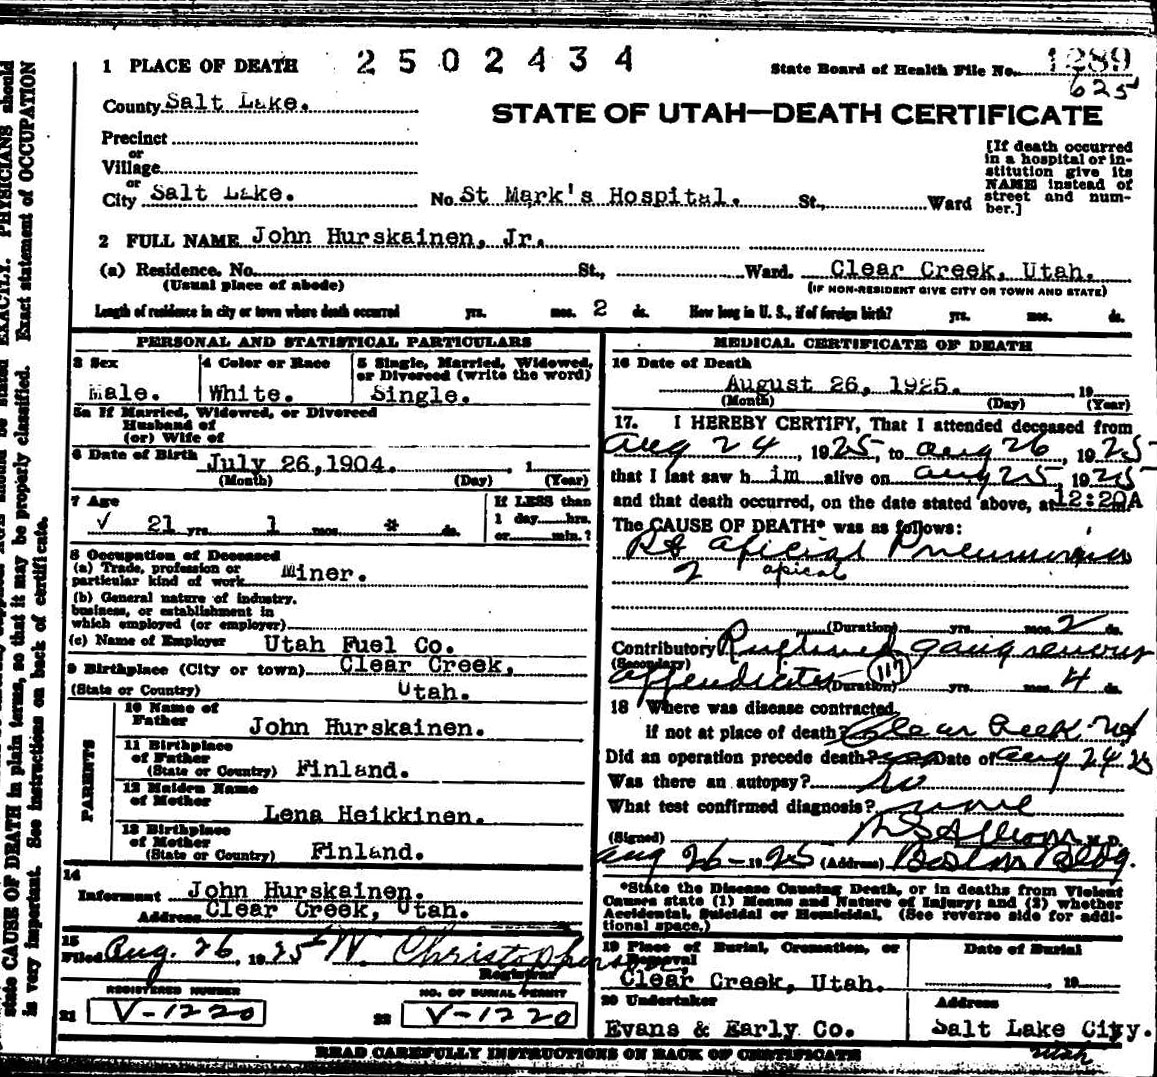 1 PLACE OF DEATH 2502434
State Board of Health File No. 1289
625
County Salt Lake.
STATE OF UTAH—DEATH CERTIFICATE
Precinct
or
Village
or
City Salt Lake.
No. St Mark's Hospital. St., Ward
[If death occurred
in a hospital or in-
stitution give its
NAME instead of
street and num-
ber.]
2 FULL NAME John Hurskainen, Jr.
(a) Residence. No. St., Ward. Clear Creek, Utah.
(Usual place of abode) (IF NON-RESIDENT GIVE CITY OR TOWN AND STATE)
Length of residence in city or town where death occurred yrs. mos. 2 ds. How long in U. S., if of foreign birth? yrs. mos. ds.
PERSONAL AND STATISTICAL PARTICULARS
3 Sex
Male.
4 Color or Race
White.
5 Single, Married, Widowed,
or Divorced (write the word)
Single.
5a If Married, Widowed, or Divorced
Husband of
(or) Wife of
6 Date of Birth July 26, 1904. , 1
(Month) (Day) (Year)
7 Age
√ 21 yrs. 1 mos. * ds.
If LESS than
1 day hrs.
or min.?
8 Occupation of Deceased
(a) Trade, profession or
particular kind of work Miner.
(b) General nature of industry,
business, or establishment in
which employed (or employer)
(c) Name of Employer Utah Fuel Co.
9 Birthplace (City or town) Clear Creek,
(State or Country) Utah.
PARENTS
10 Name of
Father John Hurskainen.
11 Birthplace
of Father
(State or Country) Finland.
12 Maiden Name
of Mother Lena Heikkinen.
13 Birthplace
of Mother
(State or Country) Finland.
14
Informant John Hurskainen.
Address Clear Creek, Utah.
15
Filed Aug. 26, 1925 W. Christopherson
Registrar
REGISTERED NUMBER
21 V-1220
NO. OF BURIAL PERMIT
22 V-1220
MEDICAL CERTIFICATE OF DEATH
16 Date of Death
August 26, 1925. , 19
(Month) (Day) (Year)
17. I HEREBY CERTIFY, That I attended deceased from
Aug 24, 1925, to Aug 26, 1925
that I last saw him alive on Aug 25, 1925
and that death occurred, on the date stated above, at 12:20A
The CAUSE OF DEATH* was as follows:
Rt Apicial Pneumonia
apical
(Duration) yrs. mos. 2 ds.
Contributory Ruptured gangrenous
(Secondary)
appendicites (117) (Duration) yrs. mos. 4 ds.
18 Where was disease contracted
if not at place of death? Clear Creek Ut
Did an operation precede death? yes Date of Aug 24 25
Was there an autopsy? no
What test confirmed diagnosis? none
(Signed) M.D.
Aug 26-1925 (Address) Boston Bldg.
*State the Disease Causing Death, or in deaths from Violent
Causes state (1) Means and Nature of Injury; and (2) whether
Accidental, Suicidal or Homicidal. (See reverse side for addi-
tional space.)
19 Place of Burial, Cremation, or
Removal
Clear Creek, Utah.
Date of Burial
, 19
20 Undertaker
Evans & Early Co.
Address
Salt Lake City.
Utah
READ CAREFULLY INSTRUCTIONS ON BACK OF CERTIFICATE
EXACTLY. PHYSICIANS should
state CAUSE OF DEATH in plain terms, so that it may be properly classified. Exact statement of OCCUPATION
is very important. See instructions on back of certificate.